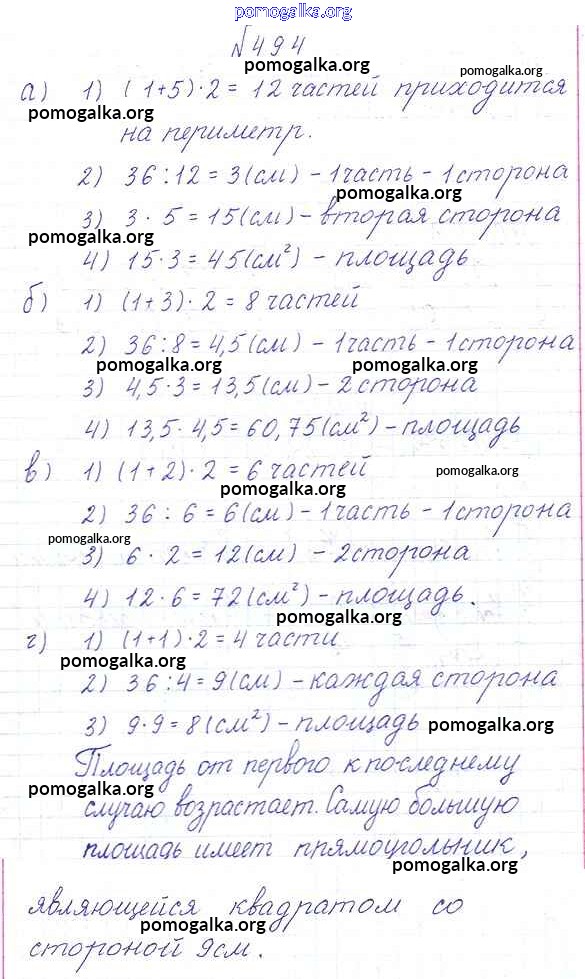 pomogalka.org
№494
pomogalka.org pomogalka.org
а) 1) (1+5)·2 = 12 частей приходится
pomogalka.org
на периметр.
2) 36:12 = 3(см) - 1часть - 1сторона
pomogalka.org
3) 3·5 = 15(см) - вторая сторона
pomogalka.org
4) 15·3 = 45(см²) - площадь
б) 1) (1+3)·2 = 8 частей
2) 36:8 = 4,5(см) - 1часть - 1сторона
pomogalka.org pomogalka.org
3) 4,5·3 = 13,5(см) - 2сторона
4) 13,5·4,5 = 60,75(см²) - площадь
в) 1) (1+2)·2 = 6 частей
pomogalka.org
pomogalka.org
2) 36:6 = 6(см) - 1часть - 1сторона
pomogalka.org
3) 6·2 = 12(см) - 2сторона
4) 12·6 = 72(см²) - площадь.
pomogalka.org
г) 1) (1+1)·2 = 4 части
pomogalka.org
2) 36:4 = 9(см) - каждая сторона
3) 9·9 = 8(см²) - площадь pomogalka.org
Площадь от первого к последнему
pomogalka.org
случаю возрастает. Самую большую
площадь имеет прямоугольник,
pomogalka.org
являющейся квадратом со
pomogalka.org
стороной 9см.